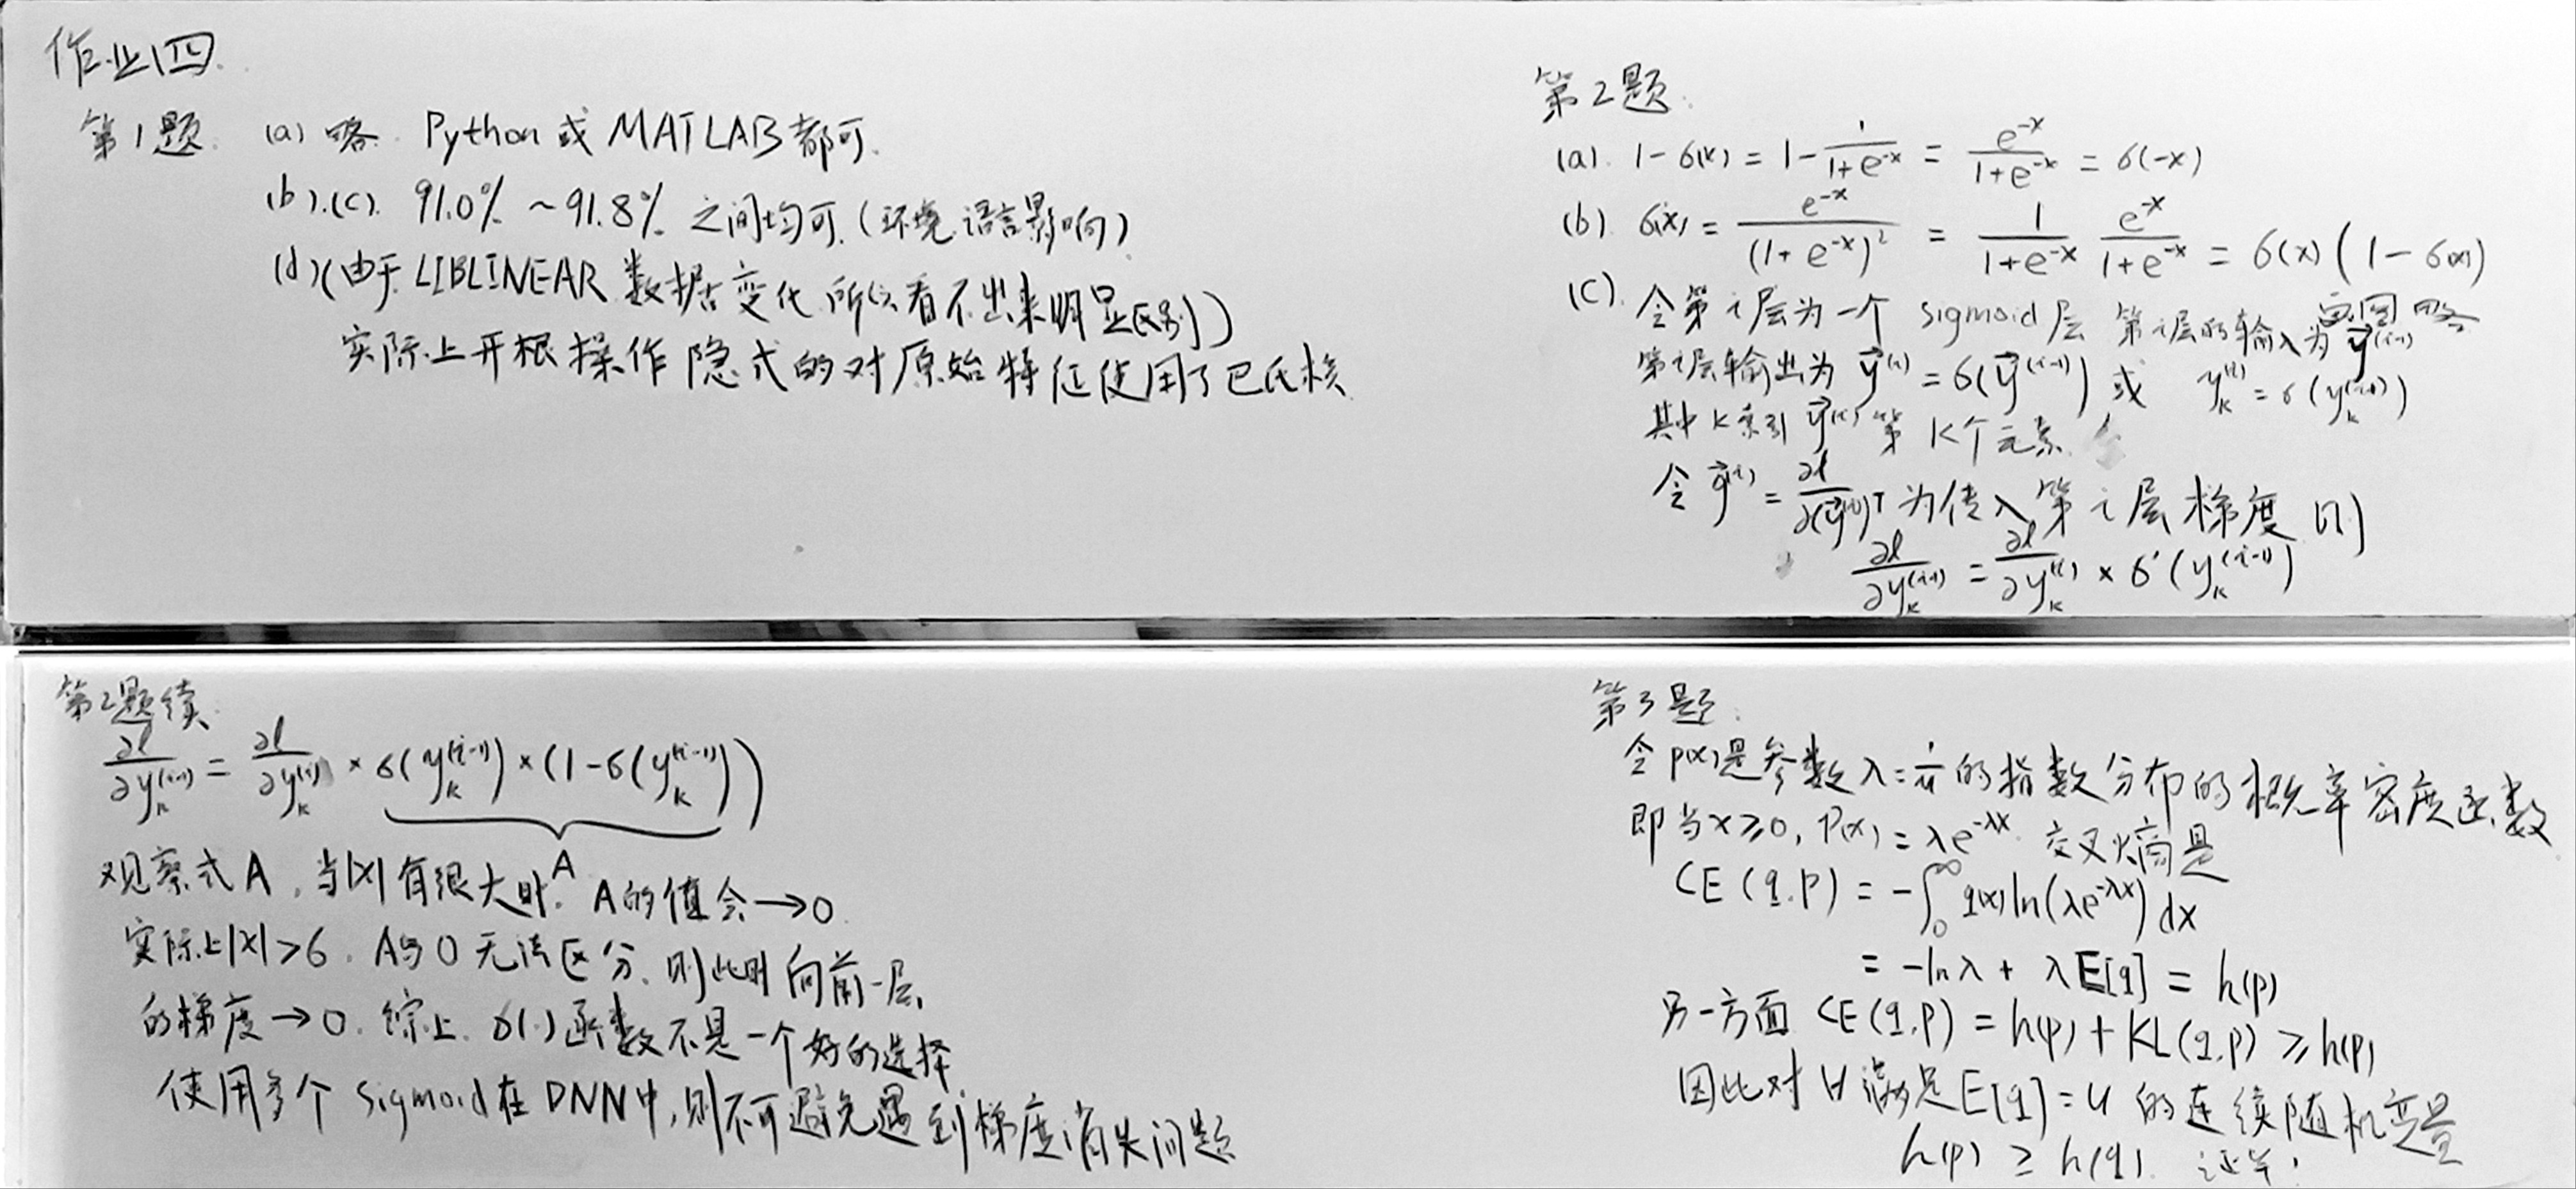 作业四.
第1题. (a) 略. Python或MATLAB都可.
(b).(c). 91.0% ~ 91.8% 之间均可.(环境.语言影响)
(d)(由于LIBLINEAR数据变化.所以看不出来明显区别)
实际上开根操作隐式的对原始特征使用了巴氏核
第2题.
(a). 1-σ(x) = 1 - \frac{1}{1+e^{-x}} = \frac{e^{-x}}{1+e^{-x}} = σ(-x)
(b). σ(x)' = \frac{e^{-x}}{(1+e^{-x})^2} = \frac{1}{1+e^{-x}} \frac{e^{-x}}{1+e^{-x}} = σ(x)(1-σ(x))
画图略
(c). 令第i层为一个 sigmoid层 第i层的输入为 \vec{y}^{(i-1)}
第i层输出为 \vec{y}^{(i)} = σ(\vec{y}^{(i-1)}) 或 y_k^{(i)} = σ(y_k^{(i-1)})
其中k索引 \vec{y}^{(i)} 第k个元素.
令 \vec{g}^{(i)} = \frac{∂l}{∂(\vec{y}^{(i)})^T} 为传入第i层梯度.则
\frac{∂l}{∂y_k^{(i-1)}} = \frac{∂l}{∂y_k^{(i)}} × σ'(y_k^{(i-1)})
第2题续.
\frac{∂l}{∂y_k^{(i-1)}} = \frac{∂l}{∂y_k^{(i)}} × σ(y_k^{(i-1)}) × (1-σ(y_k^{(i-1)}))
A
观察式A,当|x|有很大时.A的值会→0
实际上|x|>6.A与0无法区分.则此时向前一层,
的梯度→0.综上.σ(.)函数不是一个好的选择
使用多个sigmoid在DNN中,则不可避免遇到梯度消失问题
第3题.
令p(x)是参数λ=\frac{1}{u}的指数分布的概率密度函数
即当x≥0, p(x) = λe^{-λx}. 交叉熵是
CE(q.p) = -∫_0^∞ q(x)ln(λe^{-λx})dx
= -lnλ + λE[q] = h(p)
另一方面 CE(q.p) = h(p) + KL(q.p) ≥ h(p)
因此对∀满足E[q]=u的连续随机变量
h(p) ≥ h(q). 证毕.